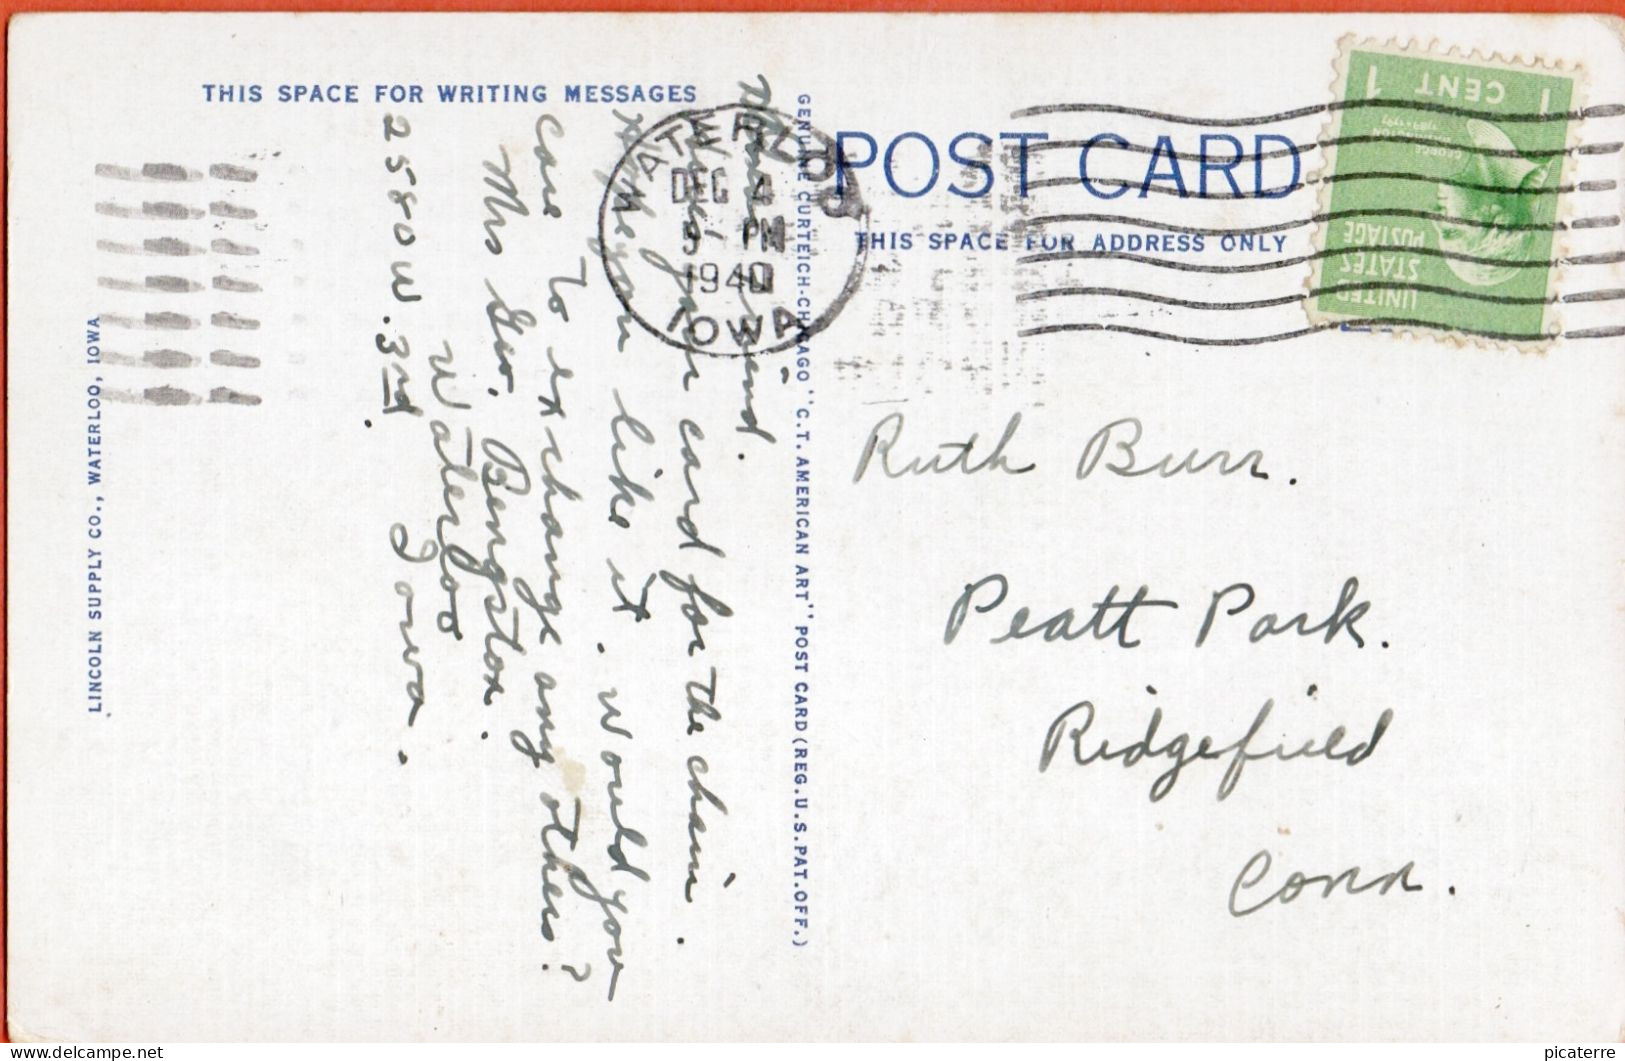 THIS SPACE FOR WRITING MESSAGES
friend.
your card for the chain.
Hope you like it. would you
care to exchange any others?
Mrs Geo. Bengston.
2580 W. 3rd.
Waterloo
Iowa.
LINCOLN SUPPLY CO., WATERLOO, IOWA
GENUINE CURTEICH-CHICAGO "C.T. AMERICAN ART" POST CARD (REG. U.S. PAT. OFF.)
WATERLOO
DEC 4
PM
1940
IOWA
POST CARD
THIS SPACE FOR ADDRESS ONLY
UNITED
STATES
POSTAGE
GEORGE
WASHINGTON
1789-1797
1 CENT 1
Ruth Burr.
Peatt Park.
Ridgefield
Conn.
picaterre